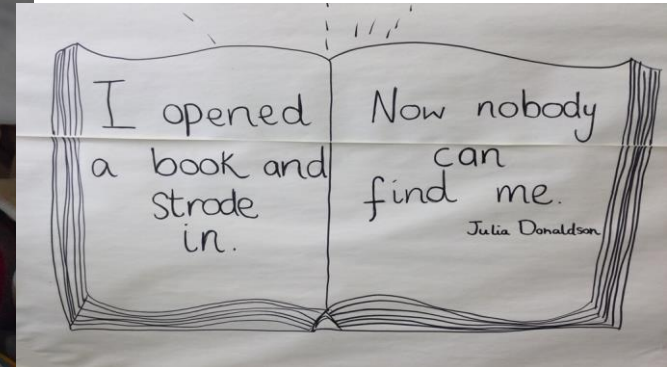 I opened
a book and
strode
in.
Now nobody
can
find me.
Julia Donaldson